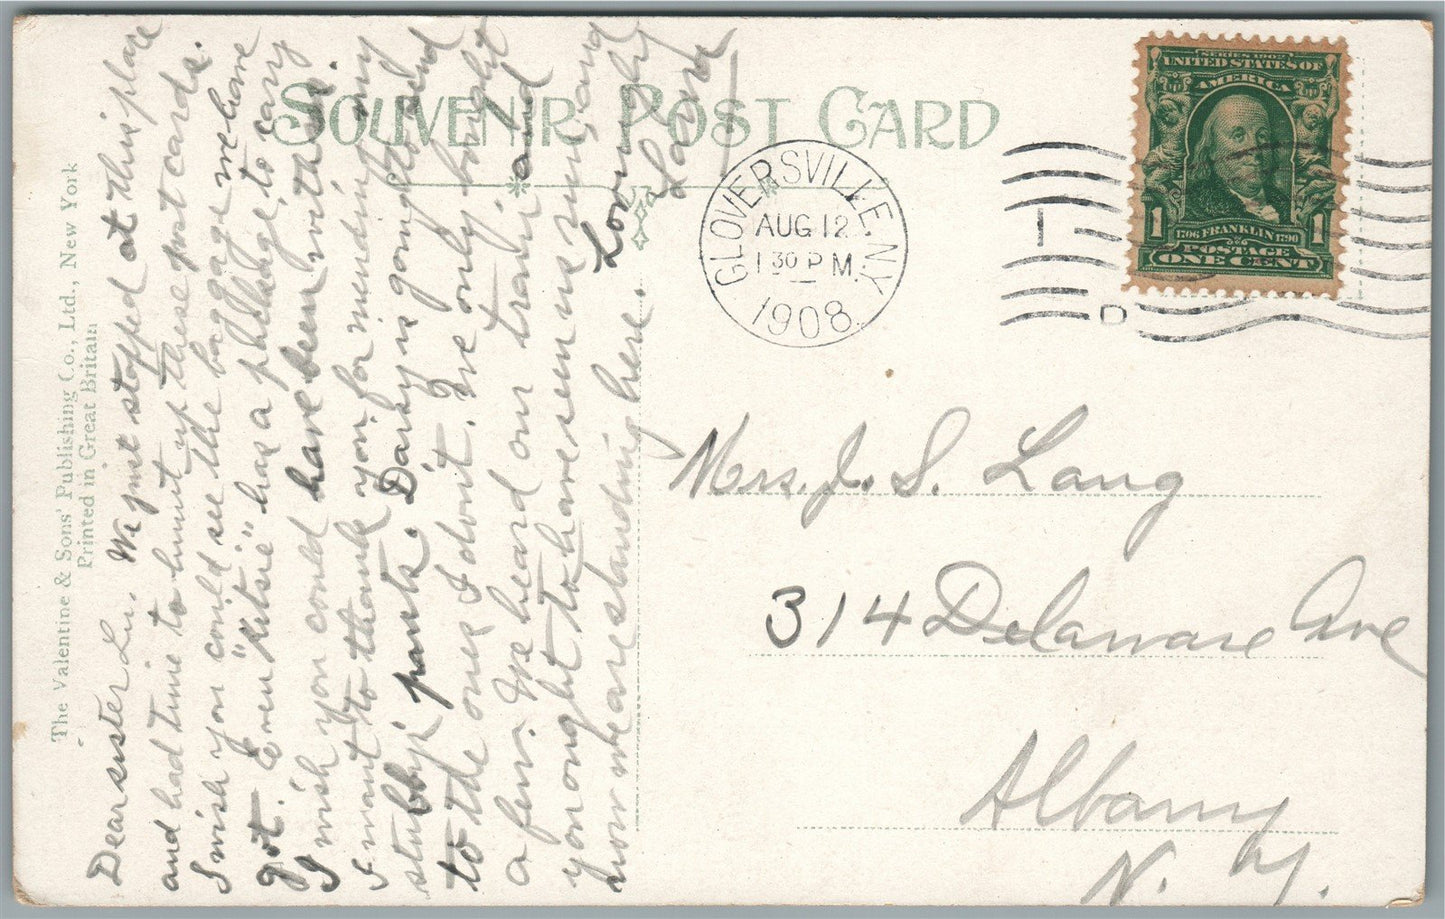 SOUVENIR POST CARD
The Valentine & Sons' Publishing Co., Ltd., New York
Printed in Great Britain
Dear sister Lu, We just stopped at this place
and had time to hunt up these post cards.
I wish you could see the baggage we have
got. Even "Kitsie" has a package to carry
I wish you could have been with us.
I want to thank you for mending my
stubby' pants. Daisy is going to send
to the ones I don't. We only bought
a few. We heard our train and
you ought to have seen us run, and
now we are standing here.
Lovingly
Laura
GLOVERSVILLE N.Y.
AUG 12
1 30 P M
1908
1
D
SERIES 1902
UNITED STATES OF
AMERICA
1 1706 FRANKLIN 1790 1
POSTAGE
ONE CENT
Mrs. J. S. Lang
314 Delaware Ave
Albany
N. Y.